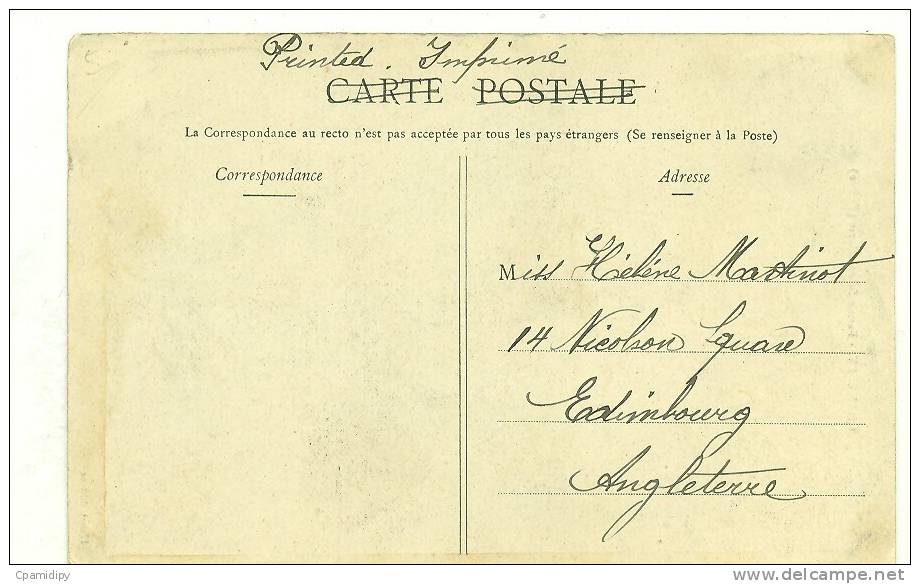 Printed. Imprimé
CARTE POSTALE
La Correspondance au recto n'est pas acceptée par tous les pays étrangers (Se renseigner à la Poste)
Correspondance
Adresse
Miss Hélène Martinot
14 Nicolson Square
Edimbourg
Angleterre
Cpamidipy
www.delcampe.net